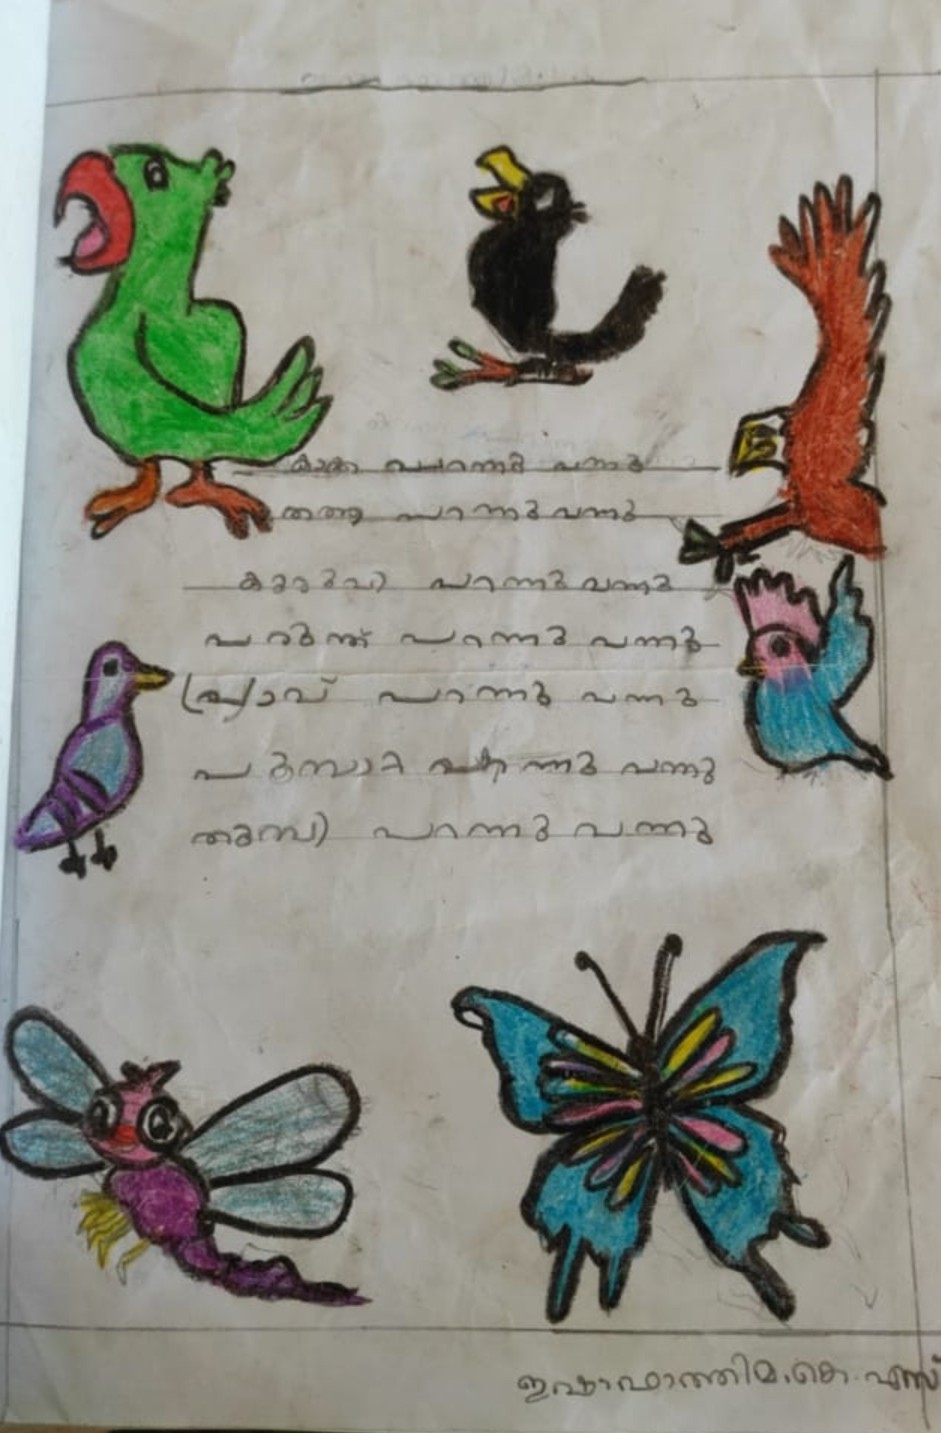 കാക്ക പറന്നു വന്നു
തത്ത പറന്നു വന്നു
കുരുവി പറന്നു വന്നു
പരുന്ത് പറന്നു വന്നു
പ്രാവ് പറന്നു വന്നു
പൂമ്പാറ്റ പറന്നു വന്നു
തുമ്പി പറന്നു വന്നു
ഇഷാഫാത്തിമ.കെ.എസ്